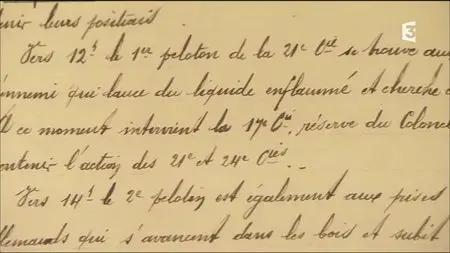 enir leurs positions
Vers 12h le 1er peloton de la 21e Cie se trouve aux
ennemi qui lance du liquide enflammé et cherche
A ce moment intervient la 17e Cie, réserve du Colonel
ontenir l'action des 21e et 24e Cies.
Vers 14h le 2e peloton est également aux prises
llemands qui s'avancent dans les bois et subit
3